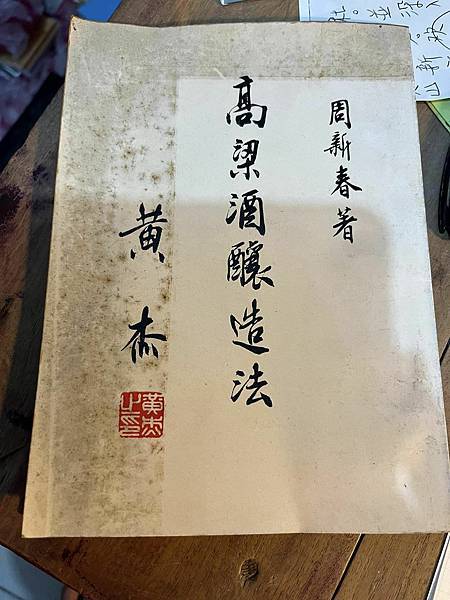 周新春著
高梁酒釀造法
黄杰
黄杰之印